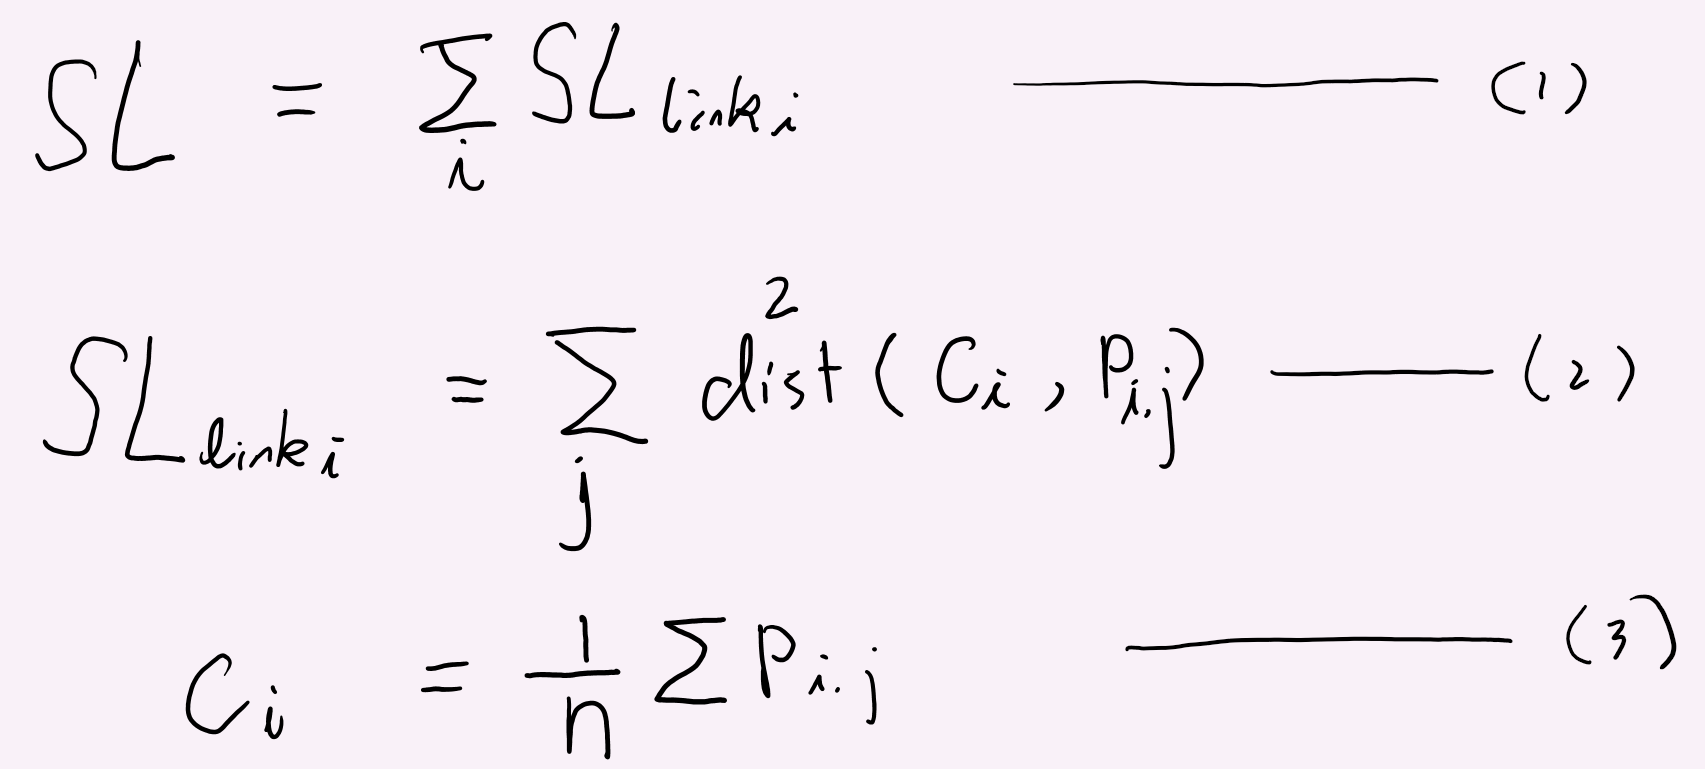 SL = ∑_i SL_{link i} ——— (1)
SL_{link i} = ∑_j dist²(C_i, P_{i.j}) ——— (2)
C_i = 1/n ∑ P_{i.j} ——— (3)